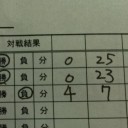 対戦結果
勝 負 分 0 25
勝 負 分 0 23
勝 負 分 4 7